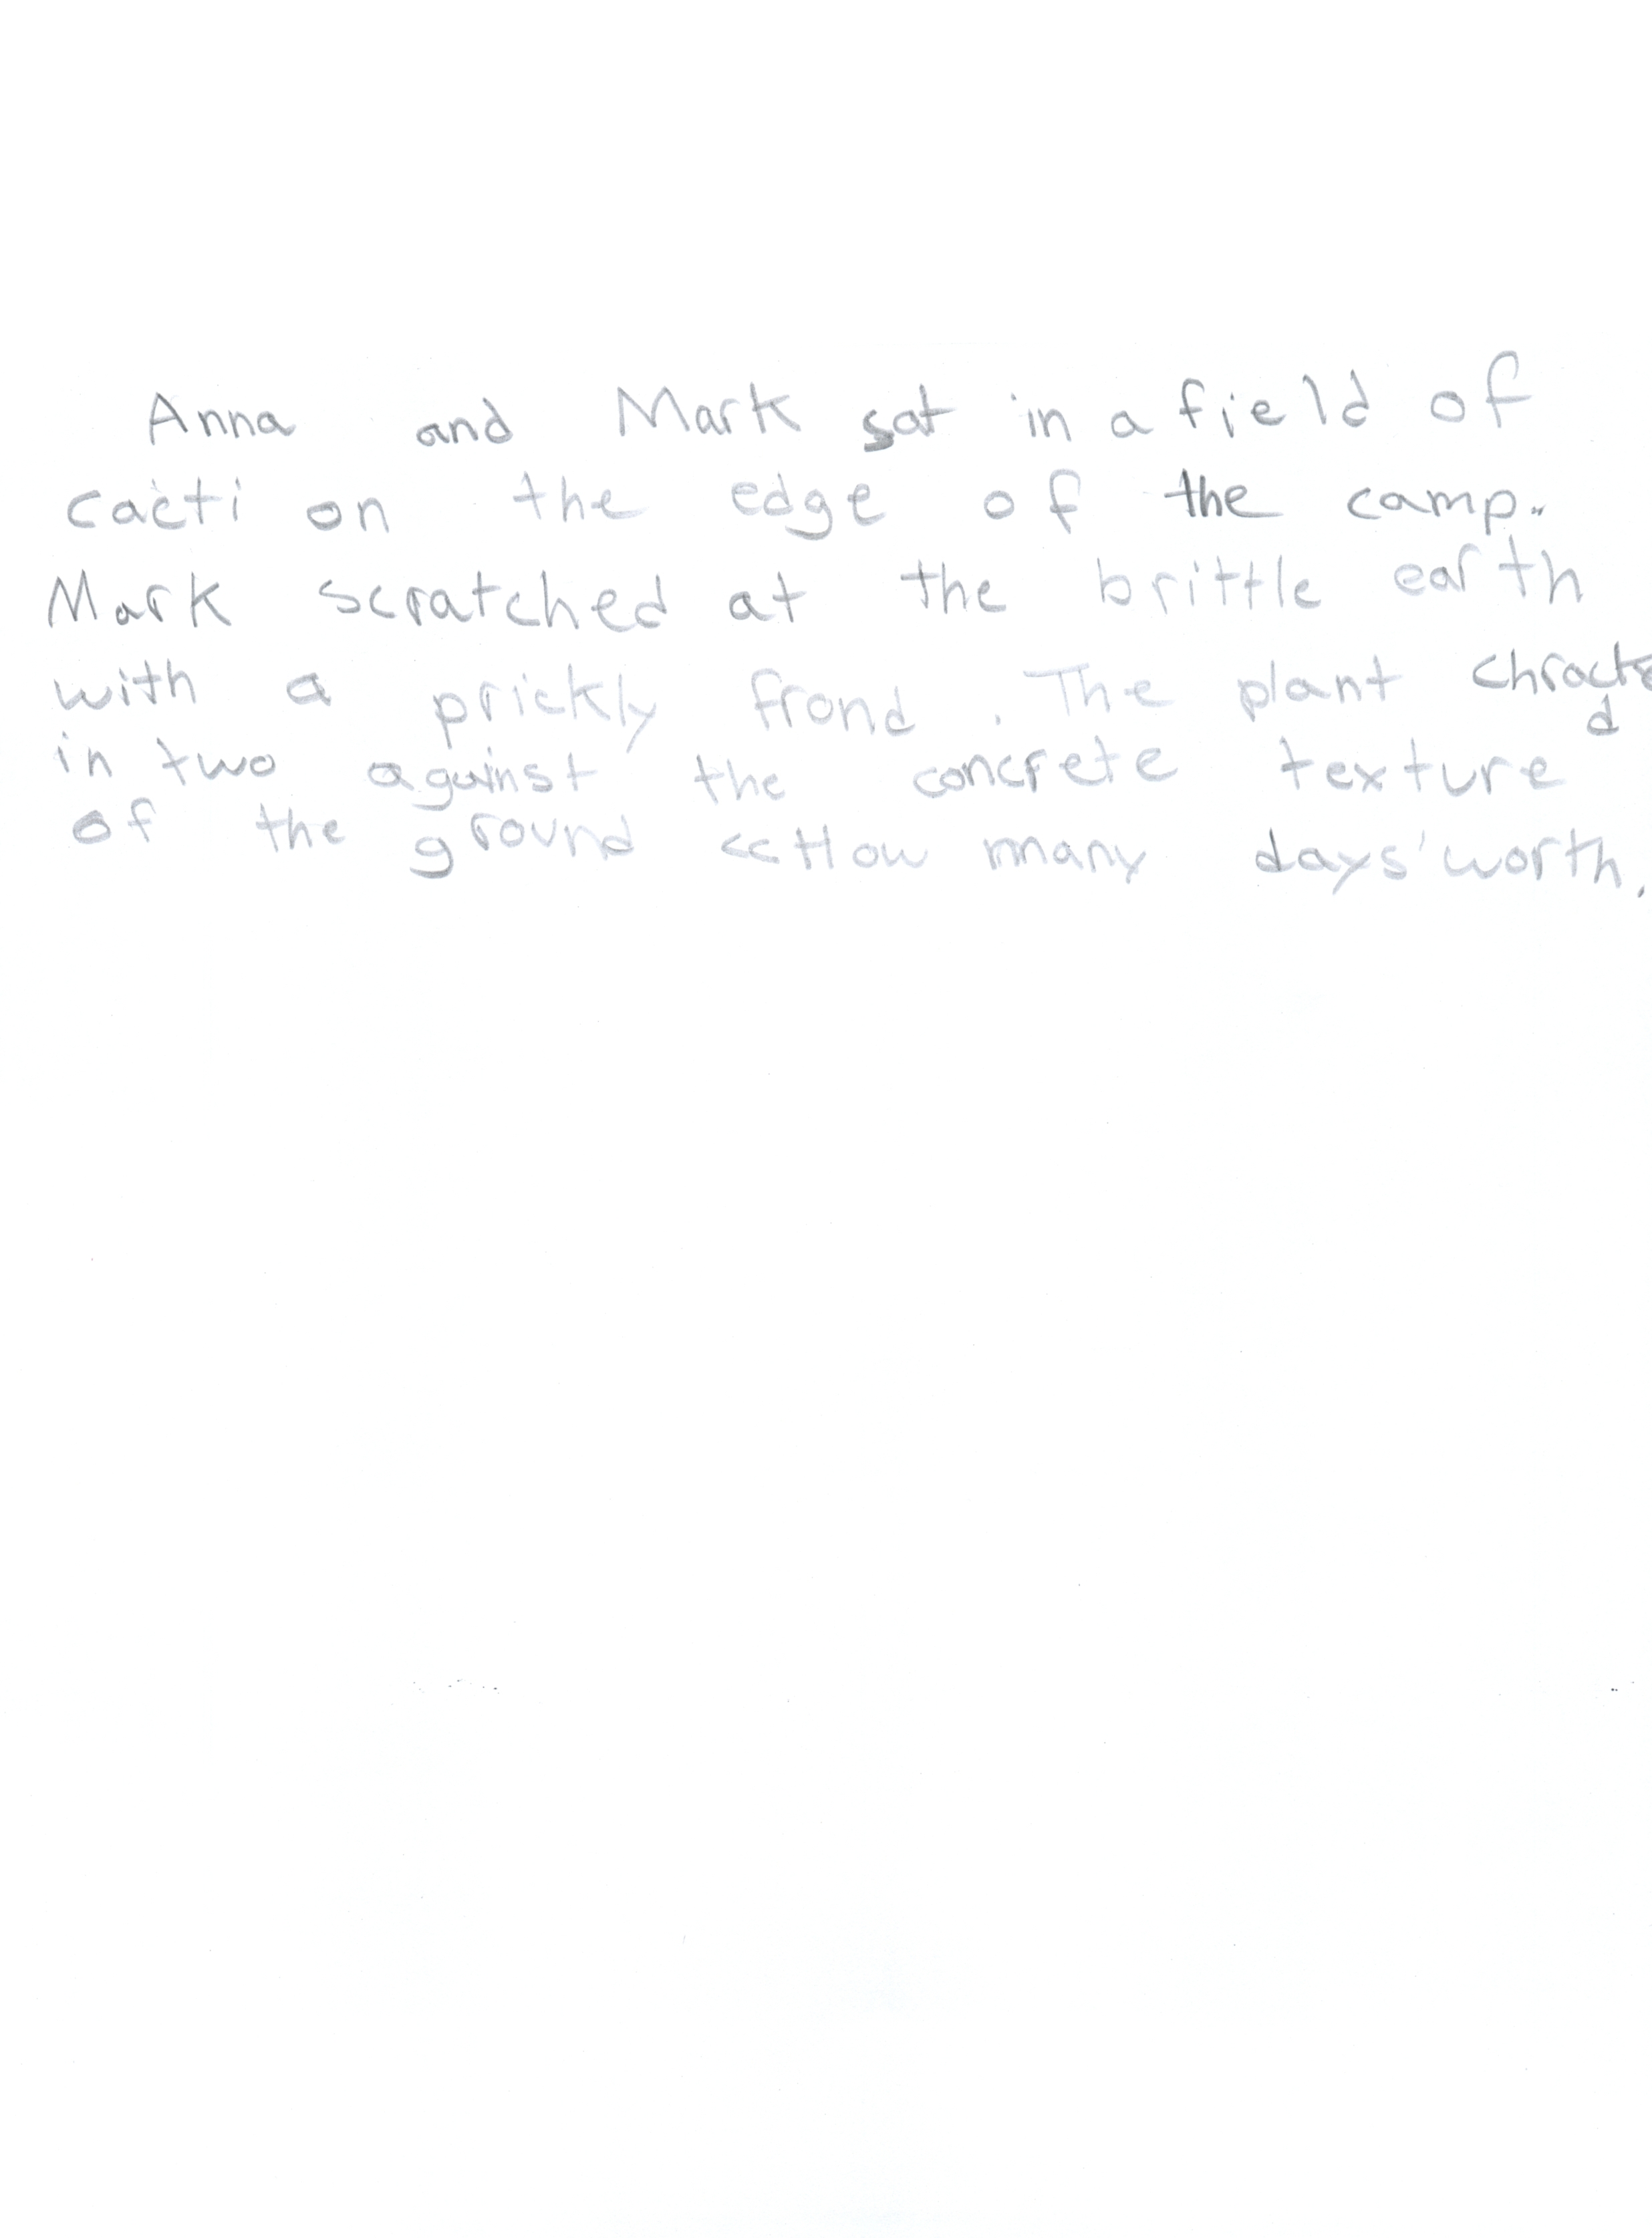 Anna and Mark sat in a field of
cacti on the edge of the camp.
Mark scratched at the brittle earth
with a prickly frond. The plant chracked
in two against the concrete texture
of the ground "How many days' worth,